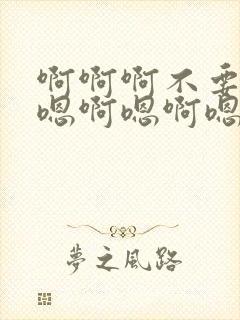 啊啊啊不要
嗯啊嗯啊嗯
夢之風路